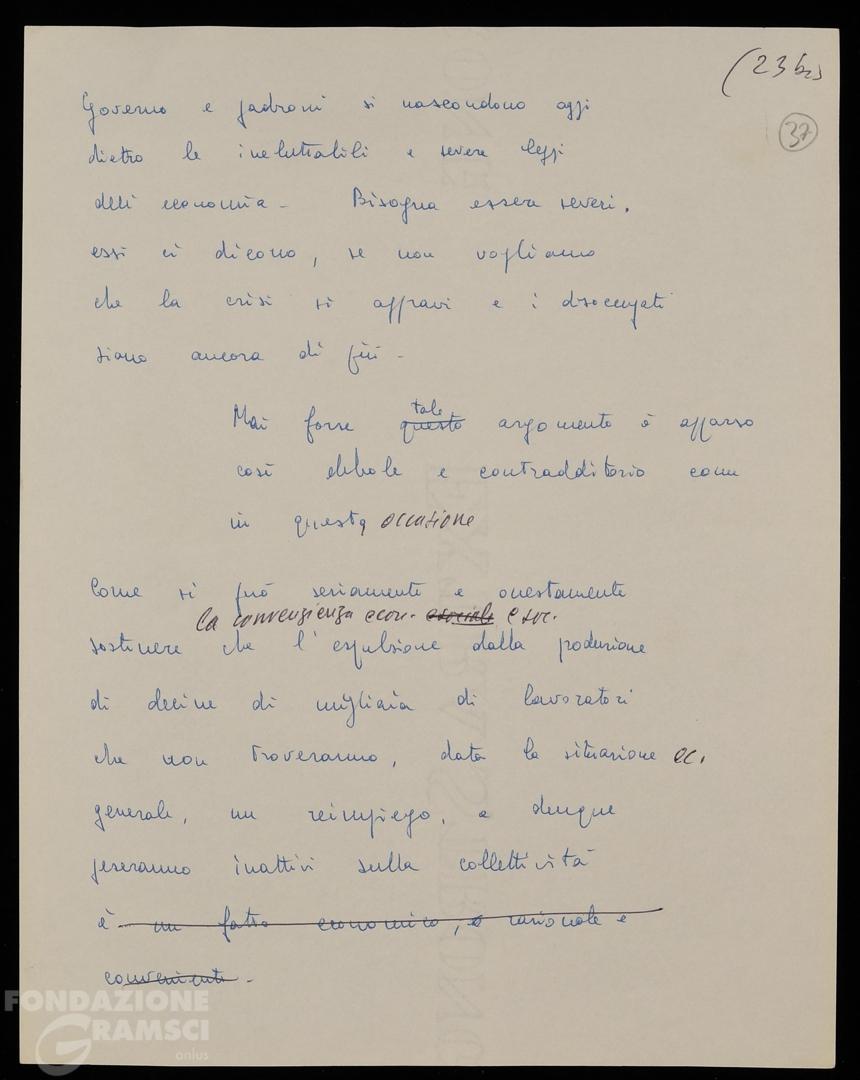 (23 bis
37
Governo e padroni si nascondono oggi
dietro le ineluttabili e severe leggi
dell'economia - Bisogna essere severi,
essi ci dicono, se non vogliamo
che la crisi si aggravi e i disoccupati
siano ancora di più -
tale
Mai forse questo argomento è apparso
così debole e contradditorio come
in questa occasione
Come si può seriamente e onestamente
la convenienza econ. e sociale e soc.
sostenere che l'espulsione dalla produzione
di decine di migliaia di lavoratori
che non troveranno, data la situazione ec.
generale, un reimpiego, e dunque
peseranno inattivi sulla collettività
è un fatto economico, e razionale e
conveniente -
FONDAZIONE
GRAMSCI
onlus